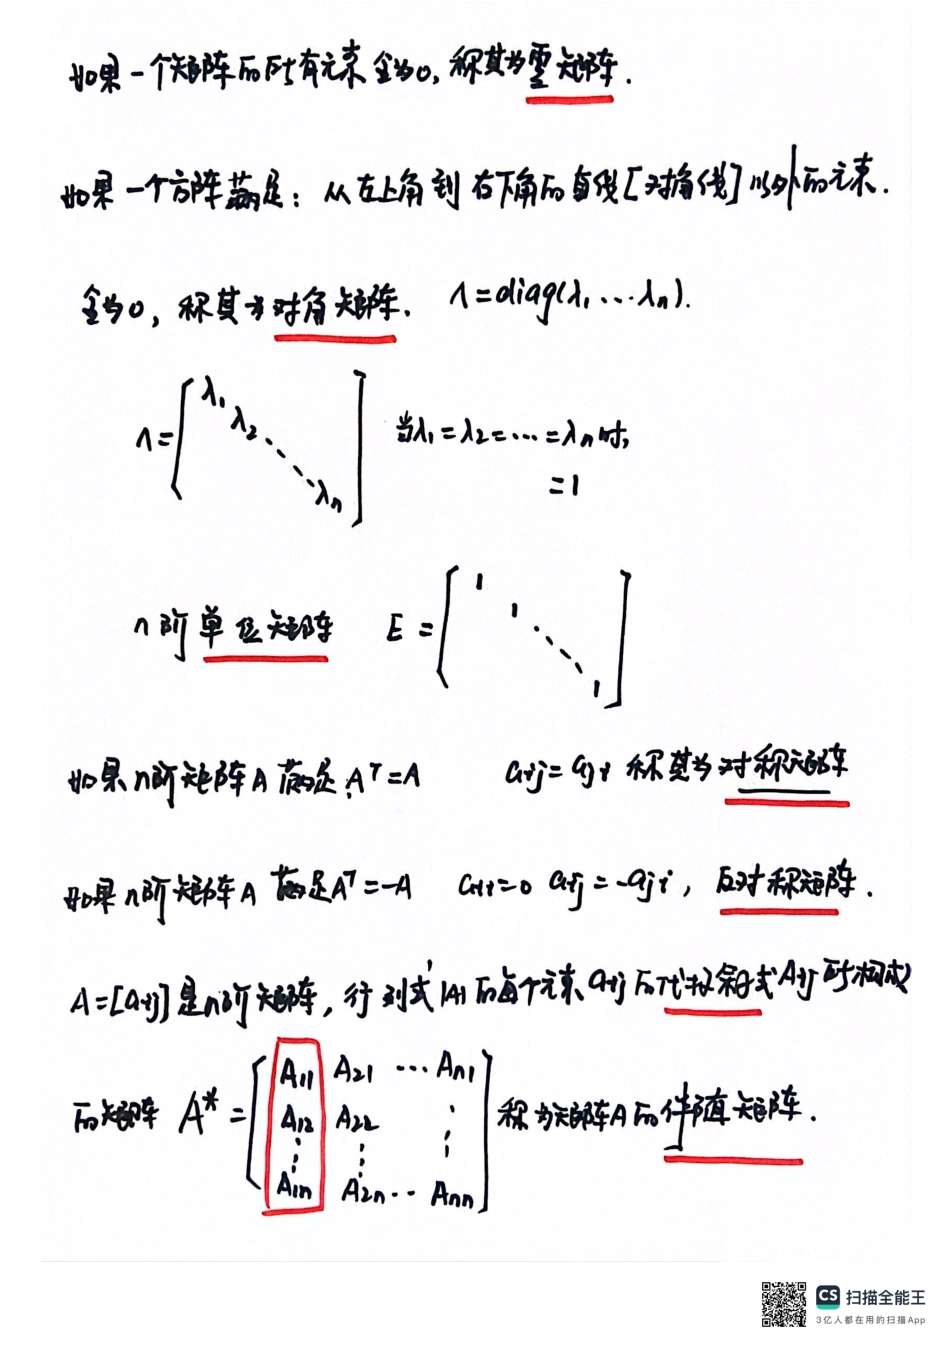 如果一个矩阵的所有元素全为0,称其为零矩阵.
如果一个方阵满足:从左上角到右下角的直线[对角线]以外的元素.
全为0,称其为对角矩阵. Λ=diag(λ₁…λn).
Λ=[λ₁ λ₂ ⋱ λn] 当λ₁=λ₂=…=λn时,
=1
n阶单位矩阵 E=[1 1 ⋱ 1]
如果n阶矩阵A满足:Aᵀ=A aij=aji 称其为对称矩阵
如果n阶矩阵A 满足Aᵀ=-A aii=0 aij=-aji, 反对称矩阵.
A=[aij]是n阶矩阵,行列式|A|的每个元素aij的代数余子式Aij所构成
的矩阵 A*=[A11 A21 … An1
A12 A22 ⋮
⋮ ⋮ ⋮
A1n A2n ‥ Ann] 称为矩阵A的伴随矩阵.
CS 扫描全能王
3亿人都在用的扫描App